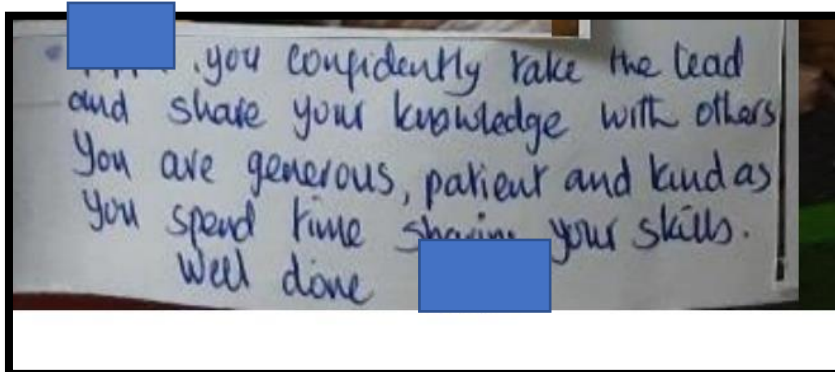 you confidently take the lead
and share your knowledge with others
You are generous, patient and kind as
you spend time sharing your skills.
Well done